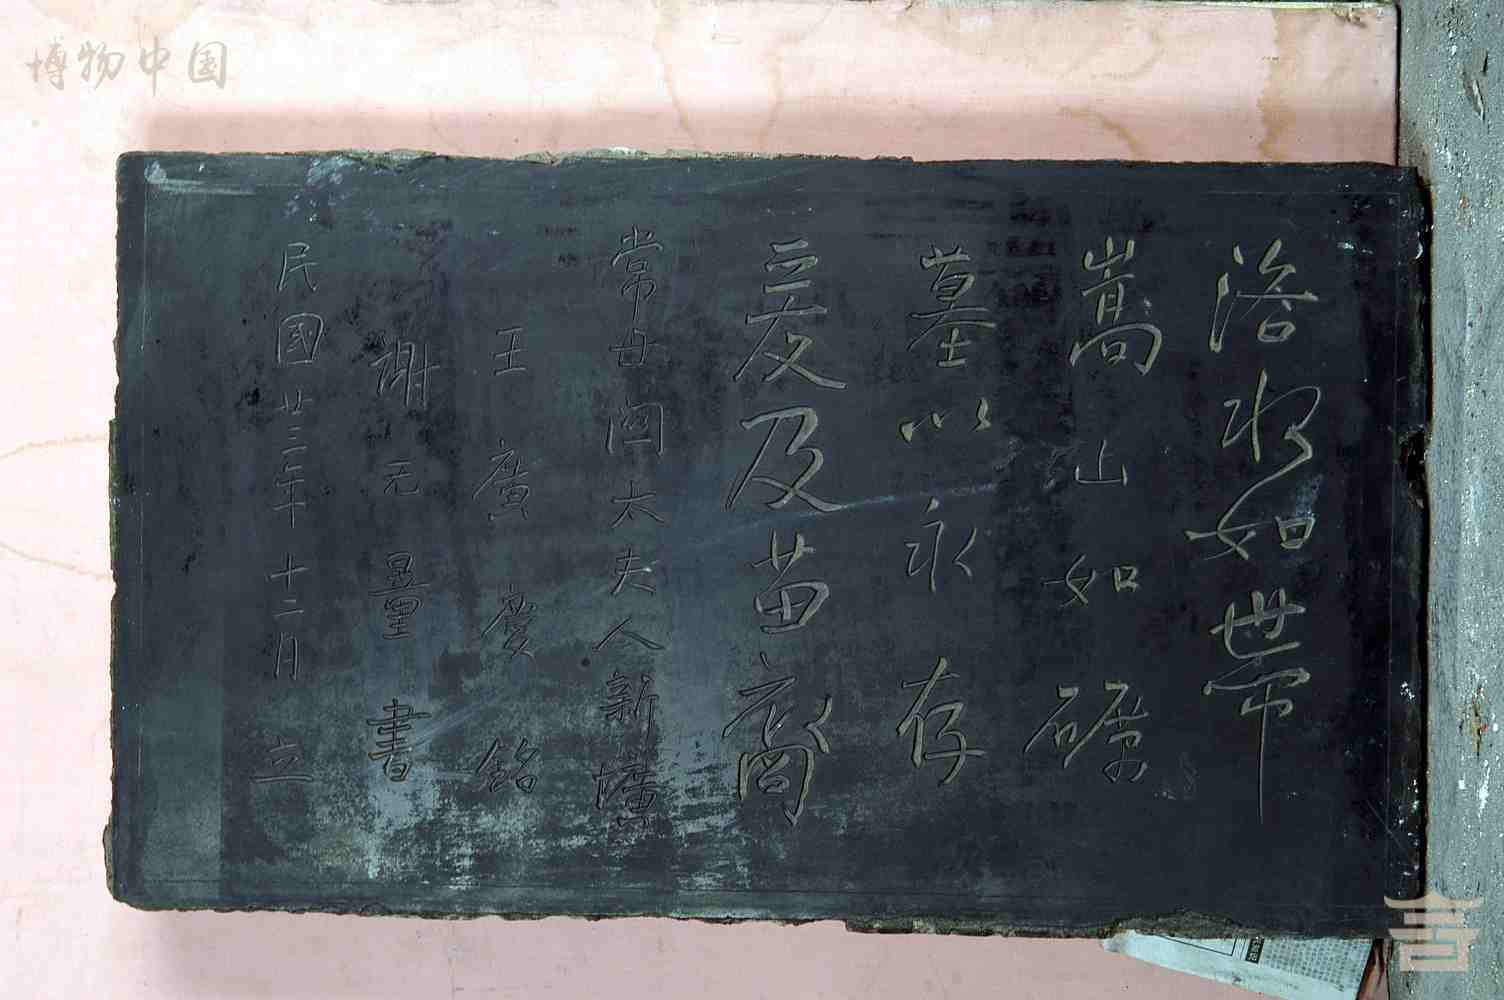 博物中国
洛水如帶
嵩山如礪
墓以永存
爰及苗裔
常母閻大夫人新壙
王廣慶銘
謝无量書
民國廿三年十二月立